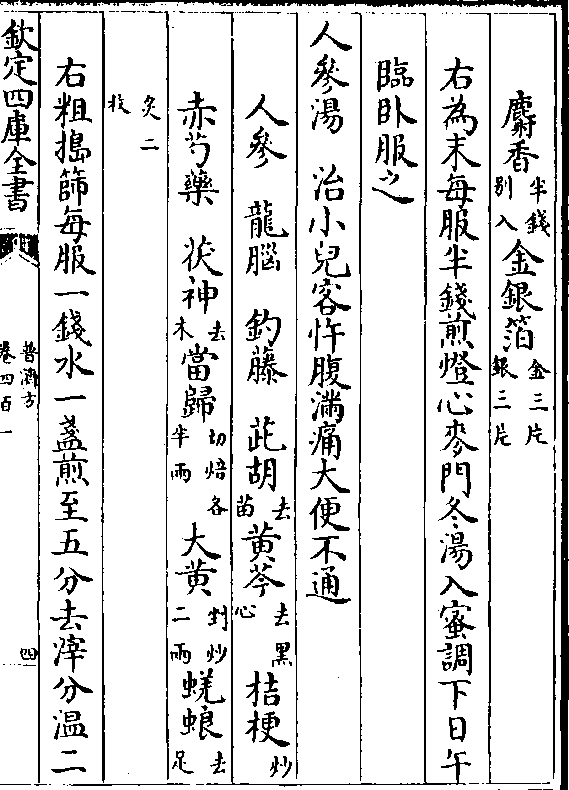 麝香半錢別入金銀箔金三片銀三片
右為末每服半錢煎燈心麥門冬湯入蜜調下日午
臨卧服之
人參湯 治小兒客忤腹滿痛大便不通
人參 龍腦 釣藤 茈胡去苗黄芩去黑心 桔梗炒
赤芍藥 茯神去木當歸切焙各半兩大黄剉炒二兩蜣蜋去足
炙二枚
右粗搗篩每服一錢水一盞煎至五分去滓分温二
欽定四庫全書
普濟方
卷四百一
四